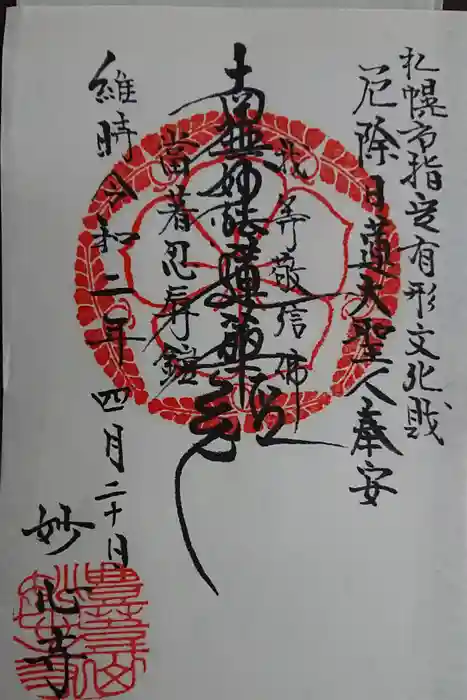 札幌市指定有形文化財
厄除日蓮大聖人奉安
我等敬信佛
南無妙法蓮華経
當著忍辱鎧
維時令和二年四月二十日
妙心寺